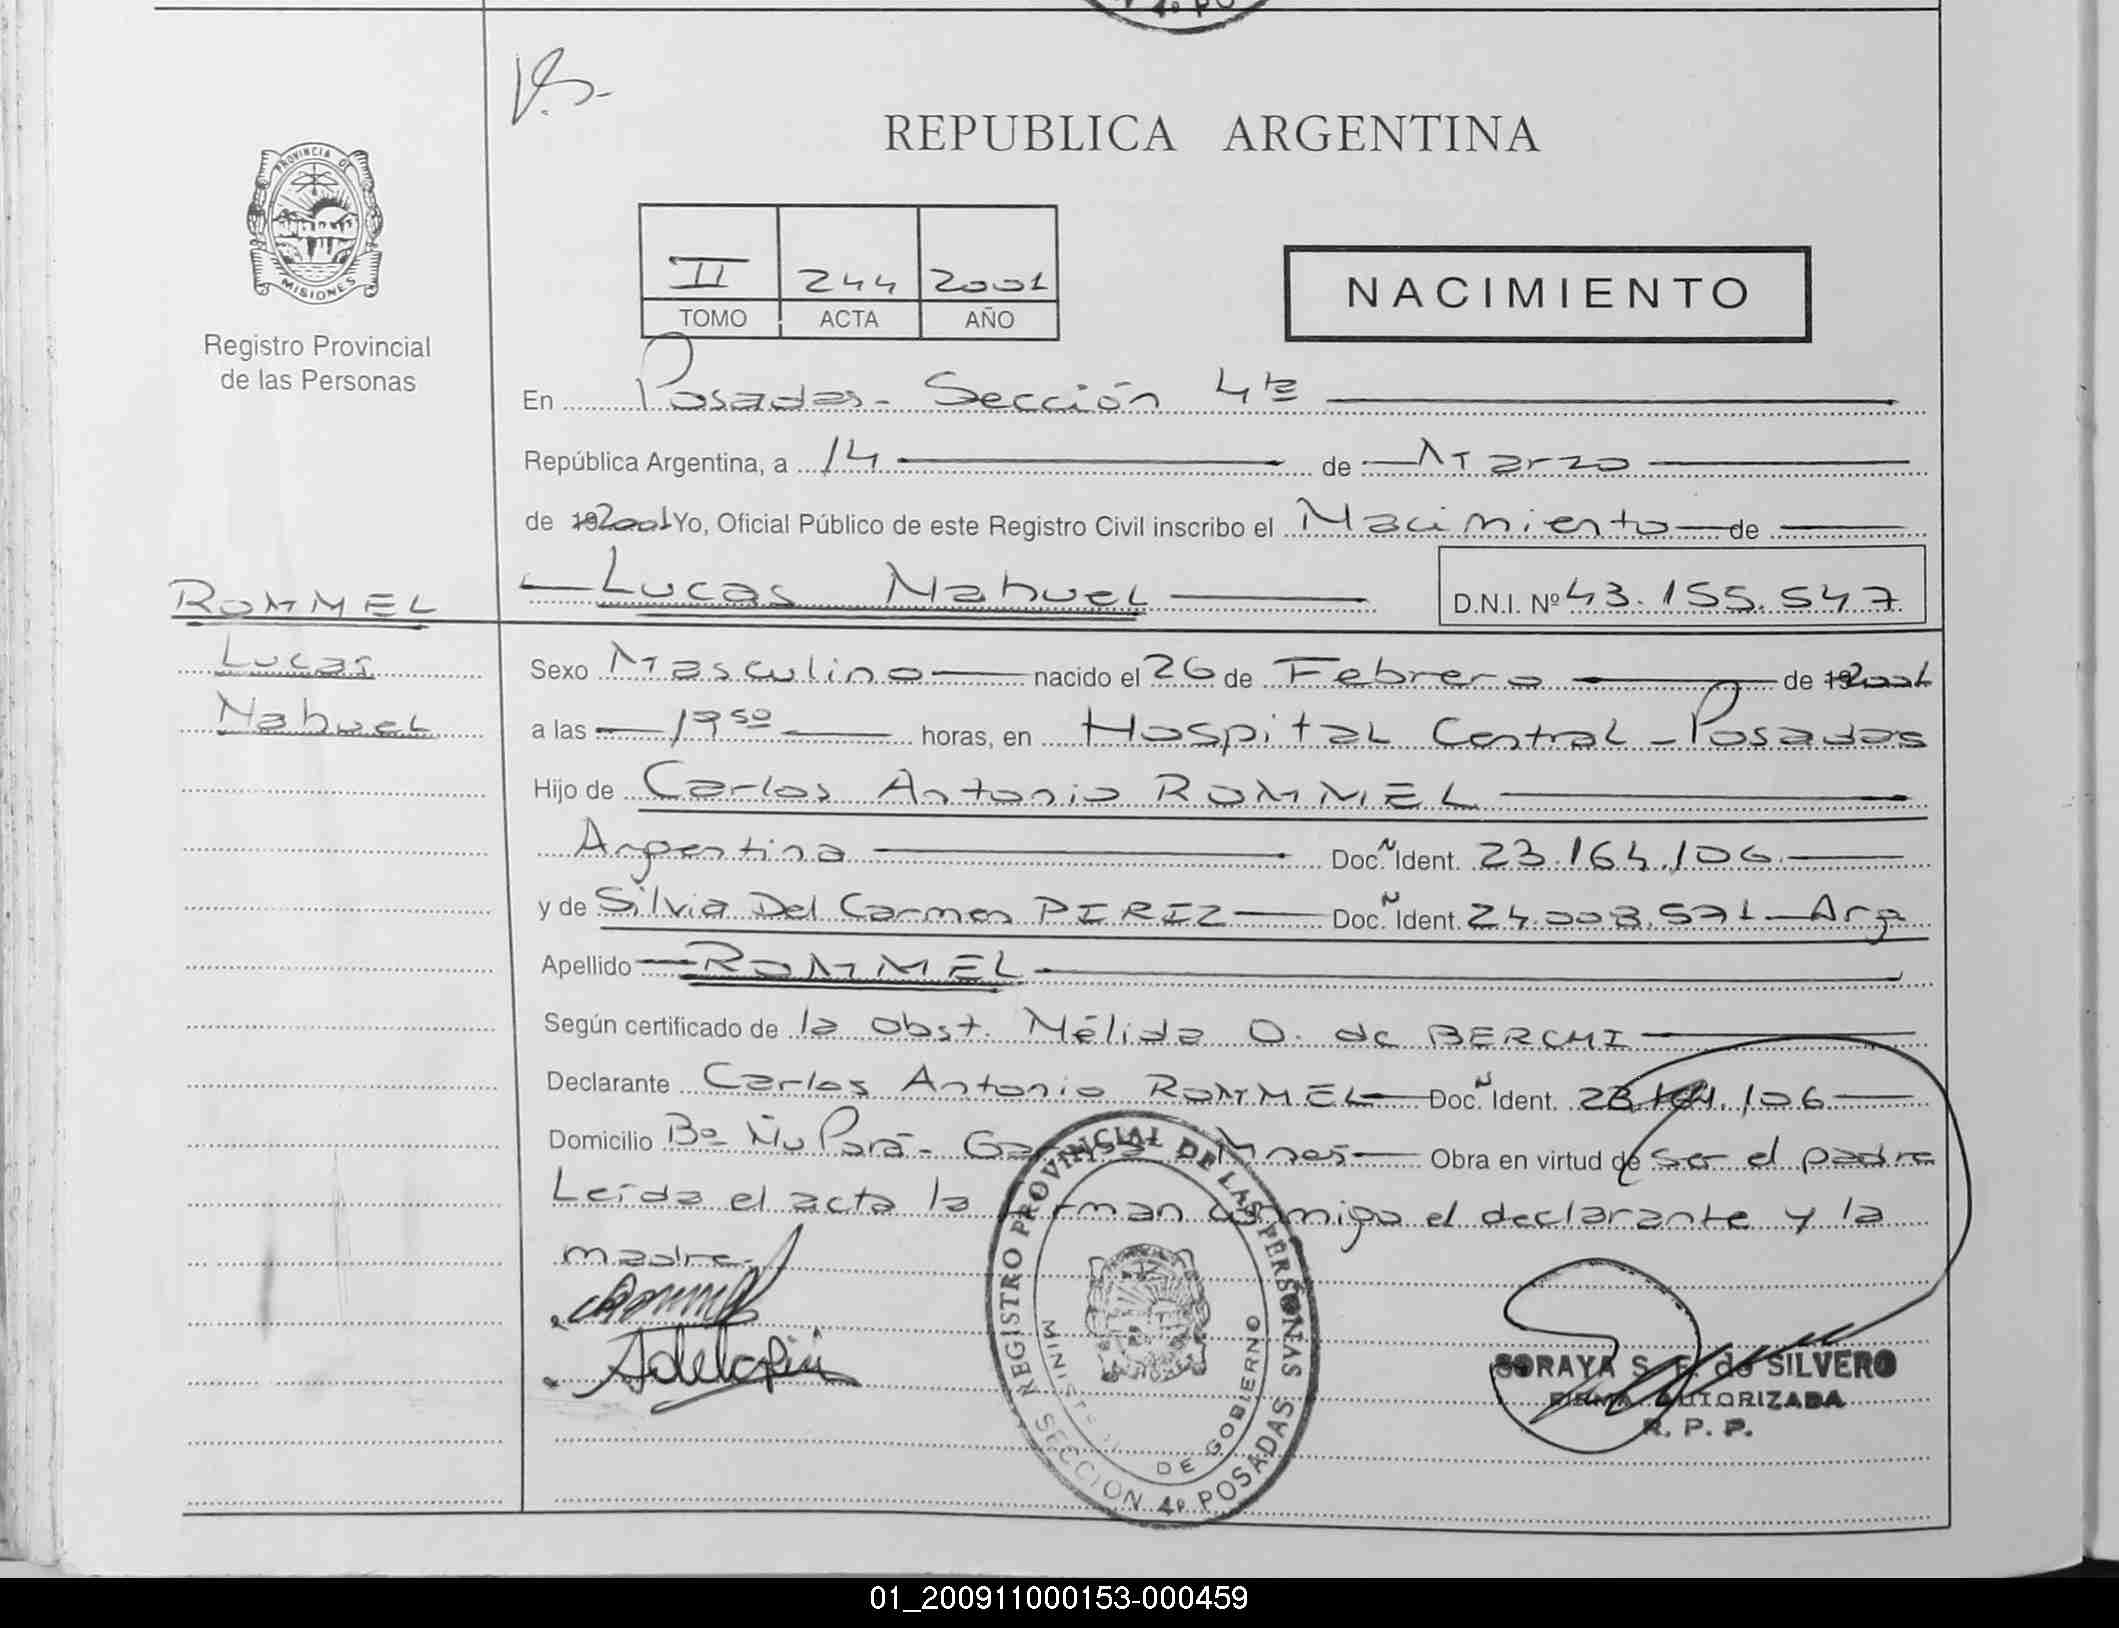 4º PO
REPUBLICA ARGENTINA
PROVINCIA DE
MISIONES
Registro Provincial
de las Personas
II 244 2001
TOMO ACTA AÑO
NACIMIENTO
En Posadas - Sección 4ta
República Argentina, a 14 de Marzo
de 192001 Yo, Oficial Público de este Registro Civil inscribo el Nacimiento de
Lucas Nahuel D.N.I. Nº 43.155.547
ROMMEL
Lucas
Nahuel
Sexo Masculino nacido el 26 de Febrero de 192001
a las 19 50 horas, en Hospital Central - Posadas
Hijo de Carlos Antonio ROMMEL
Argentina Doc. Ñ Ident. 23.164.106
y de Silvia Del Carmen PIRIZ Doc. Ñ Ident. 24.008.571 - Arg
Apellido ROMMEL
Según certificado de la Obst. Nélida O. de BERCHI
Declarante Carlos Antonio ROMMEL Doc. Ñ Ident. 23.164.106
Domicilio Bº Ñu Porá - Mnes Obra en virtud de ser el padre
Leída el acta la firman conmigo el declarante y la
madre.
REGISTRO PROVINCIAL DE LAS PERSONAS
MINISTERIO DE GOBIERNO
SECCION 4º POSADAS
SORAYA S. F. de SILVERO
FIRMA AUTORIZADA
R. P. P.
01_200911000153-000459